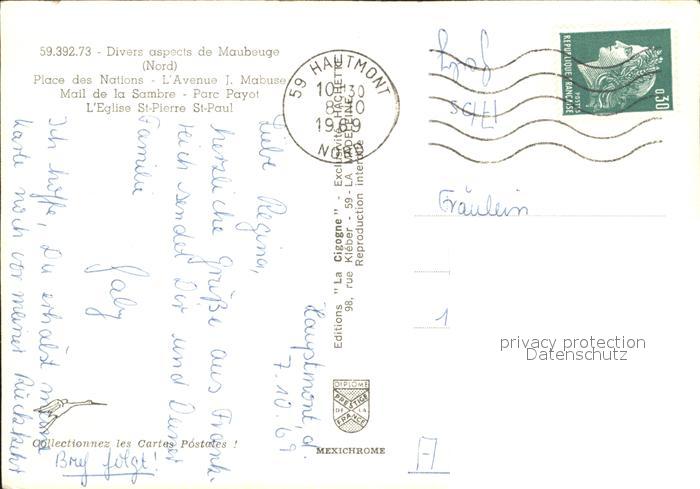 59.392.73 - Divers aspects de Maubeuge
(Nord)
Place des Nations - L'Avenue J. Mabuse
Mail de la Sambre - Parc Payot
L'Eglise St-Pierre St-Paul
59 HAUTMONT
10H30
8-10
1969
NORD
REPUBLIQUE FRANCAISE
POSTES
0,30
Hautmont, d.
7.10.69
Liebe Regina,
herzliche Grüße aus Frank-
reich sendet Dir und Deiner
Familie
Gaby
Ich hoffe, Du erhälst meine
Karte noch vor meiner Rückkehr
Brf folgt!
Editions "La Cigogne" - Exclusivité HACHETTE
98, rue Kléber - 59-LA MADELEINE
Reproduction interdite
DIPLOME
PRESTIGE
DE LA
FRANCE
MEXICHROME
Collectionnez les Cartes Postales !
Fräulein
1
A
privacy protection
Datenschutz